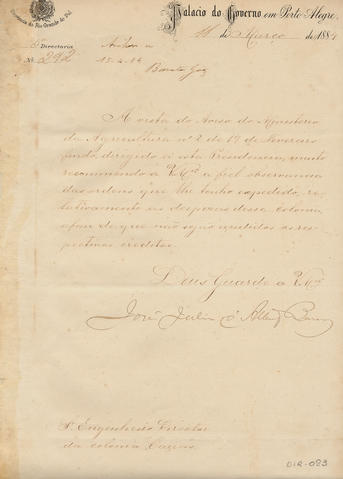 Provincia do Rio Grande do Sul
Palacio do Governo em Porto Alegre,
11 de Março de 1884
Directoria
Nº 292
15-4-84
Á vista do Aviso do Ministerio
da Agricultura nº 2 de 19 de Fevereiro
findo, dirigido a esta Presidencia, muito
recommendo á Vmcê a fiel observancia
das ordens que lhe tenho expedido, re-
lativamente as despezas dessa Colonia
afim de que não sejão excedidos os res-
pectivos creditos.
Deus Guarde a Vmcê
José Julio d'Albuqe Barros
Sr. Engenheiro Director
da colonia Caxias
DIR-083